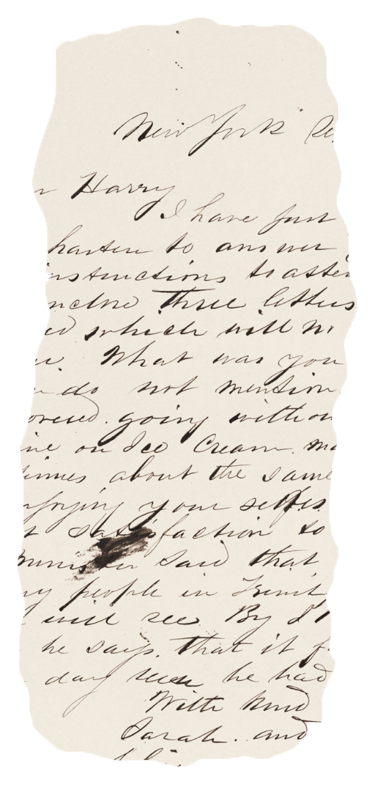 New York
Harry
I have just
hasten to answer
instructions to
three letters
which will
What was you
do not mention
going without
on Ice Cream.
times about the same
your selfes
satisfaction to
said that
people in
will see By
he says. that it
day he had
With kind
Sarah. and